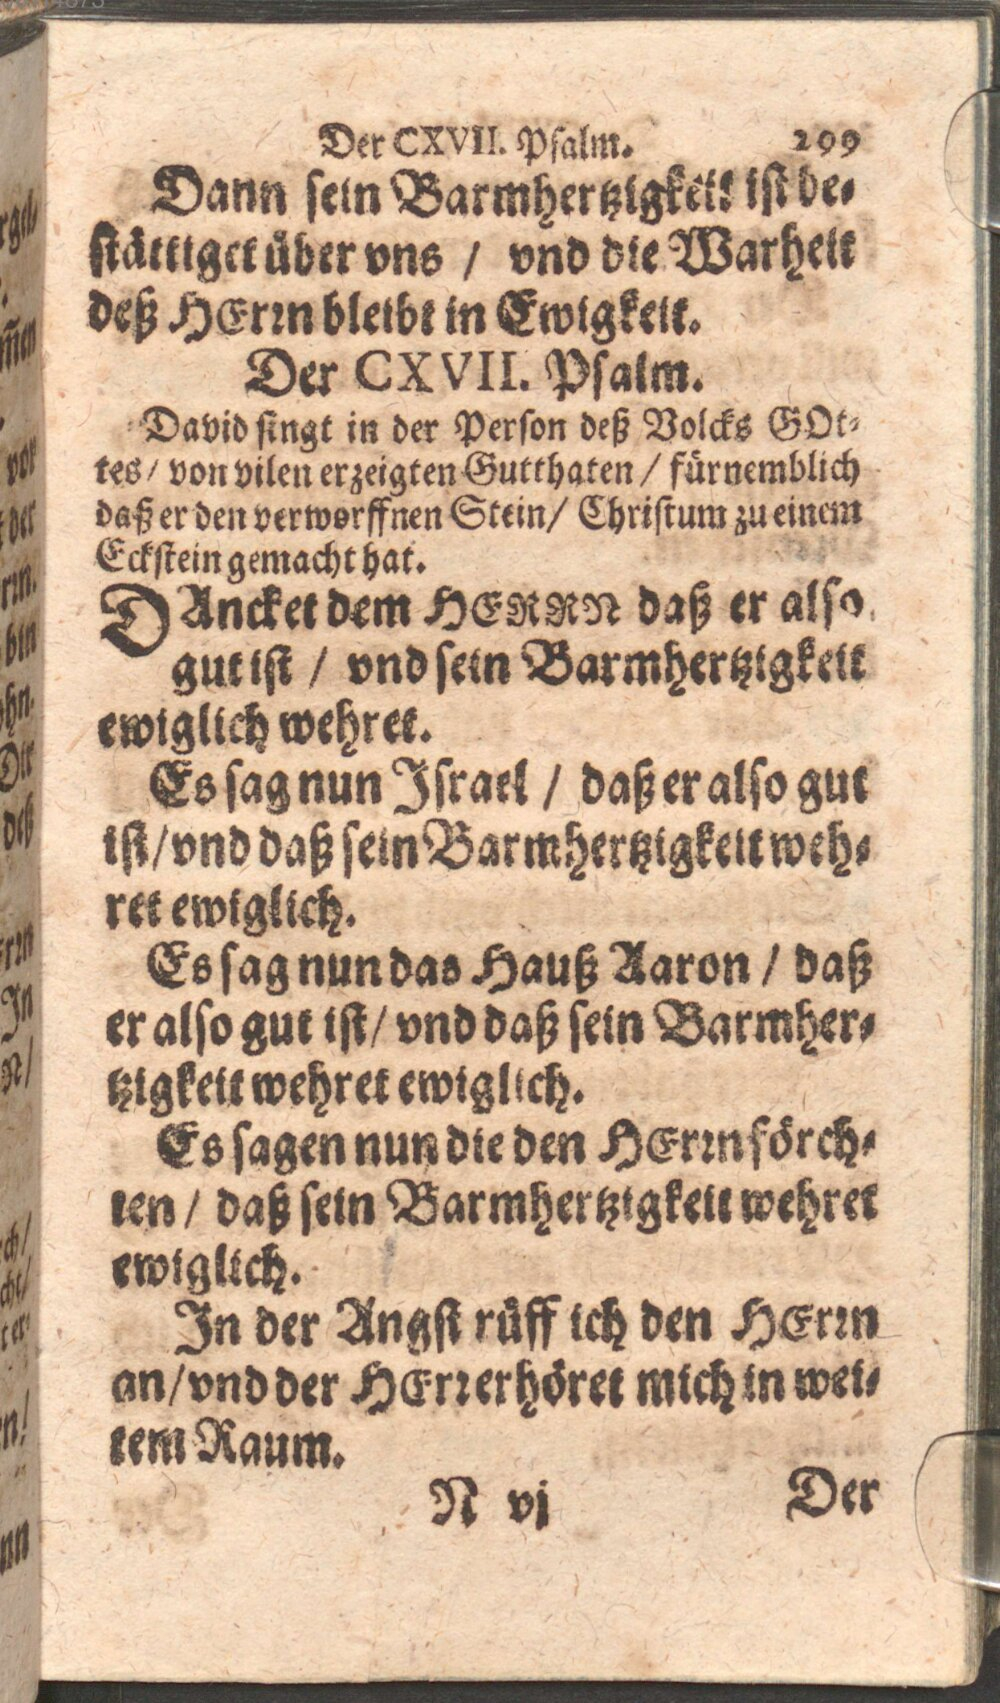 Der CXVII. Psalm. 299
Dann sein Barmhertzigkeit ist be⸗
stättiget über vns / vnd die Warheit
deß HErrn bleibt in Ewigkeit.
Der CXVII. Psalm.
David singt in der Person deß Volcks GOt⸗
tes / von vilen erzeigten Gutthaten / fürnemblich
daß er den verworffnen Stein / Christum zu einem
Eckstein gemacht hat.
DAncket dem HERRN daß er also
gut ist / vnd sein Barmhertzigkeit
ewiglich wehret.
Es sag nun Israel / daß er also gut
ist / vnd daß sein Barmhertzigkeit weh⸗
ret ewiglich.
Es sag nun das Hauß Aaron / daß
er also gut ist / vnd daß sein Barmher⸗
tzigkeit wehret ewiglich.
Es sagen nun die den HErrn förch⸗
ten / daß sein Barmhertzigkeit wehret
ewiglich.
In der Angst rüff ich den HErrn
an / vnd der HErr erhöret mich in wei⸗
tem Raum.
N vj Der